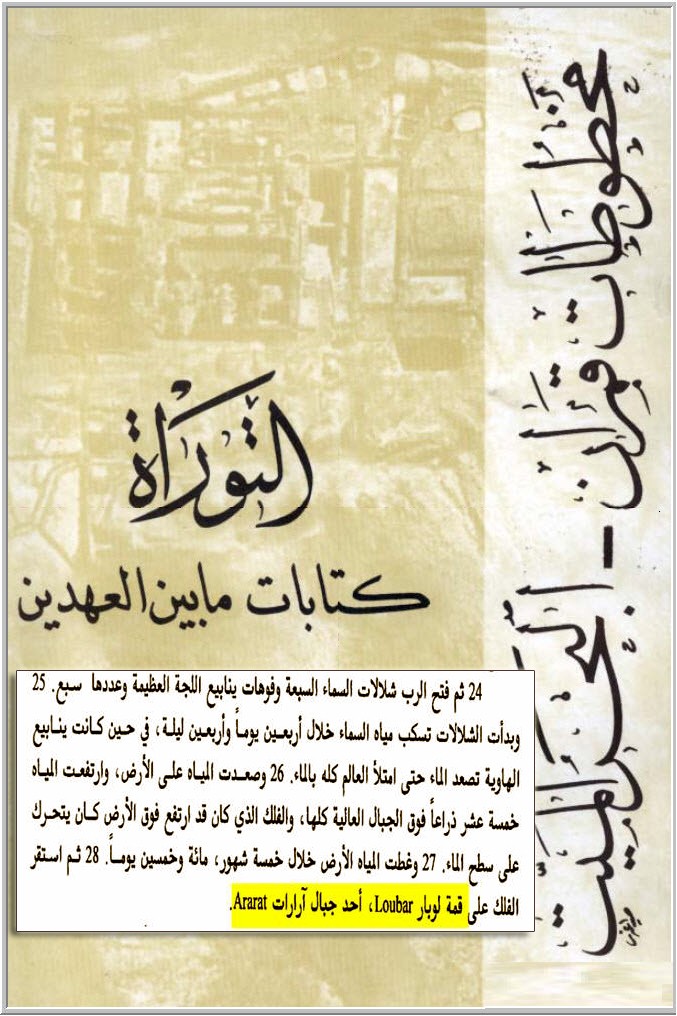 مخطوطات قمران - البحر الميت
التوراة
كتابات ما بين العهدين
24 ثم فتح الرب شلالات السماء السبعة وفوهات ينابيع اللجة العظيمة وعددها سبع. 25
وبدأت الشلالات تسكب مياه السماء خلال أربعـين يومـاً وأربعـين ليلـة، في حـين كـانت ينـابيع
الهاوية تصعد الماء حتى امتلأ العالم كله بالماء. 26 وصعـدت الميـاه علـى الأرض، وارتفعـت الميـاه
خمسة عشر ذراعاً فوق الجبال العالية كلها، والفلك الذي كان قد ارتفع فوق الأرض كـان يتحـرك
على سطح الماء. 27 وغطت المياه الأرض خلال خمسة شهور، مائة وخمسين يومـاً. 28 ثـم استقر
الفلك على قمة لوبار Loubar، أحد جبال آرارات Ararat.